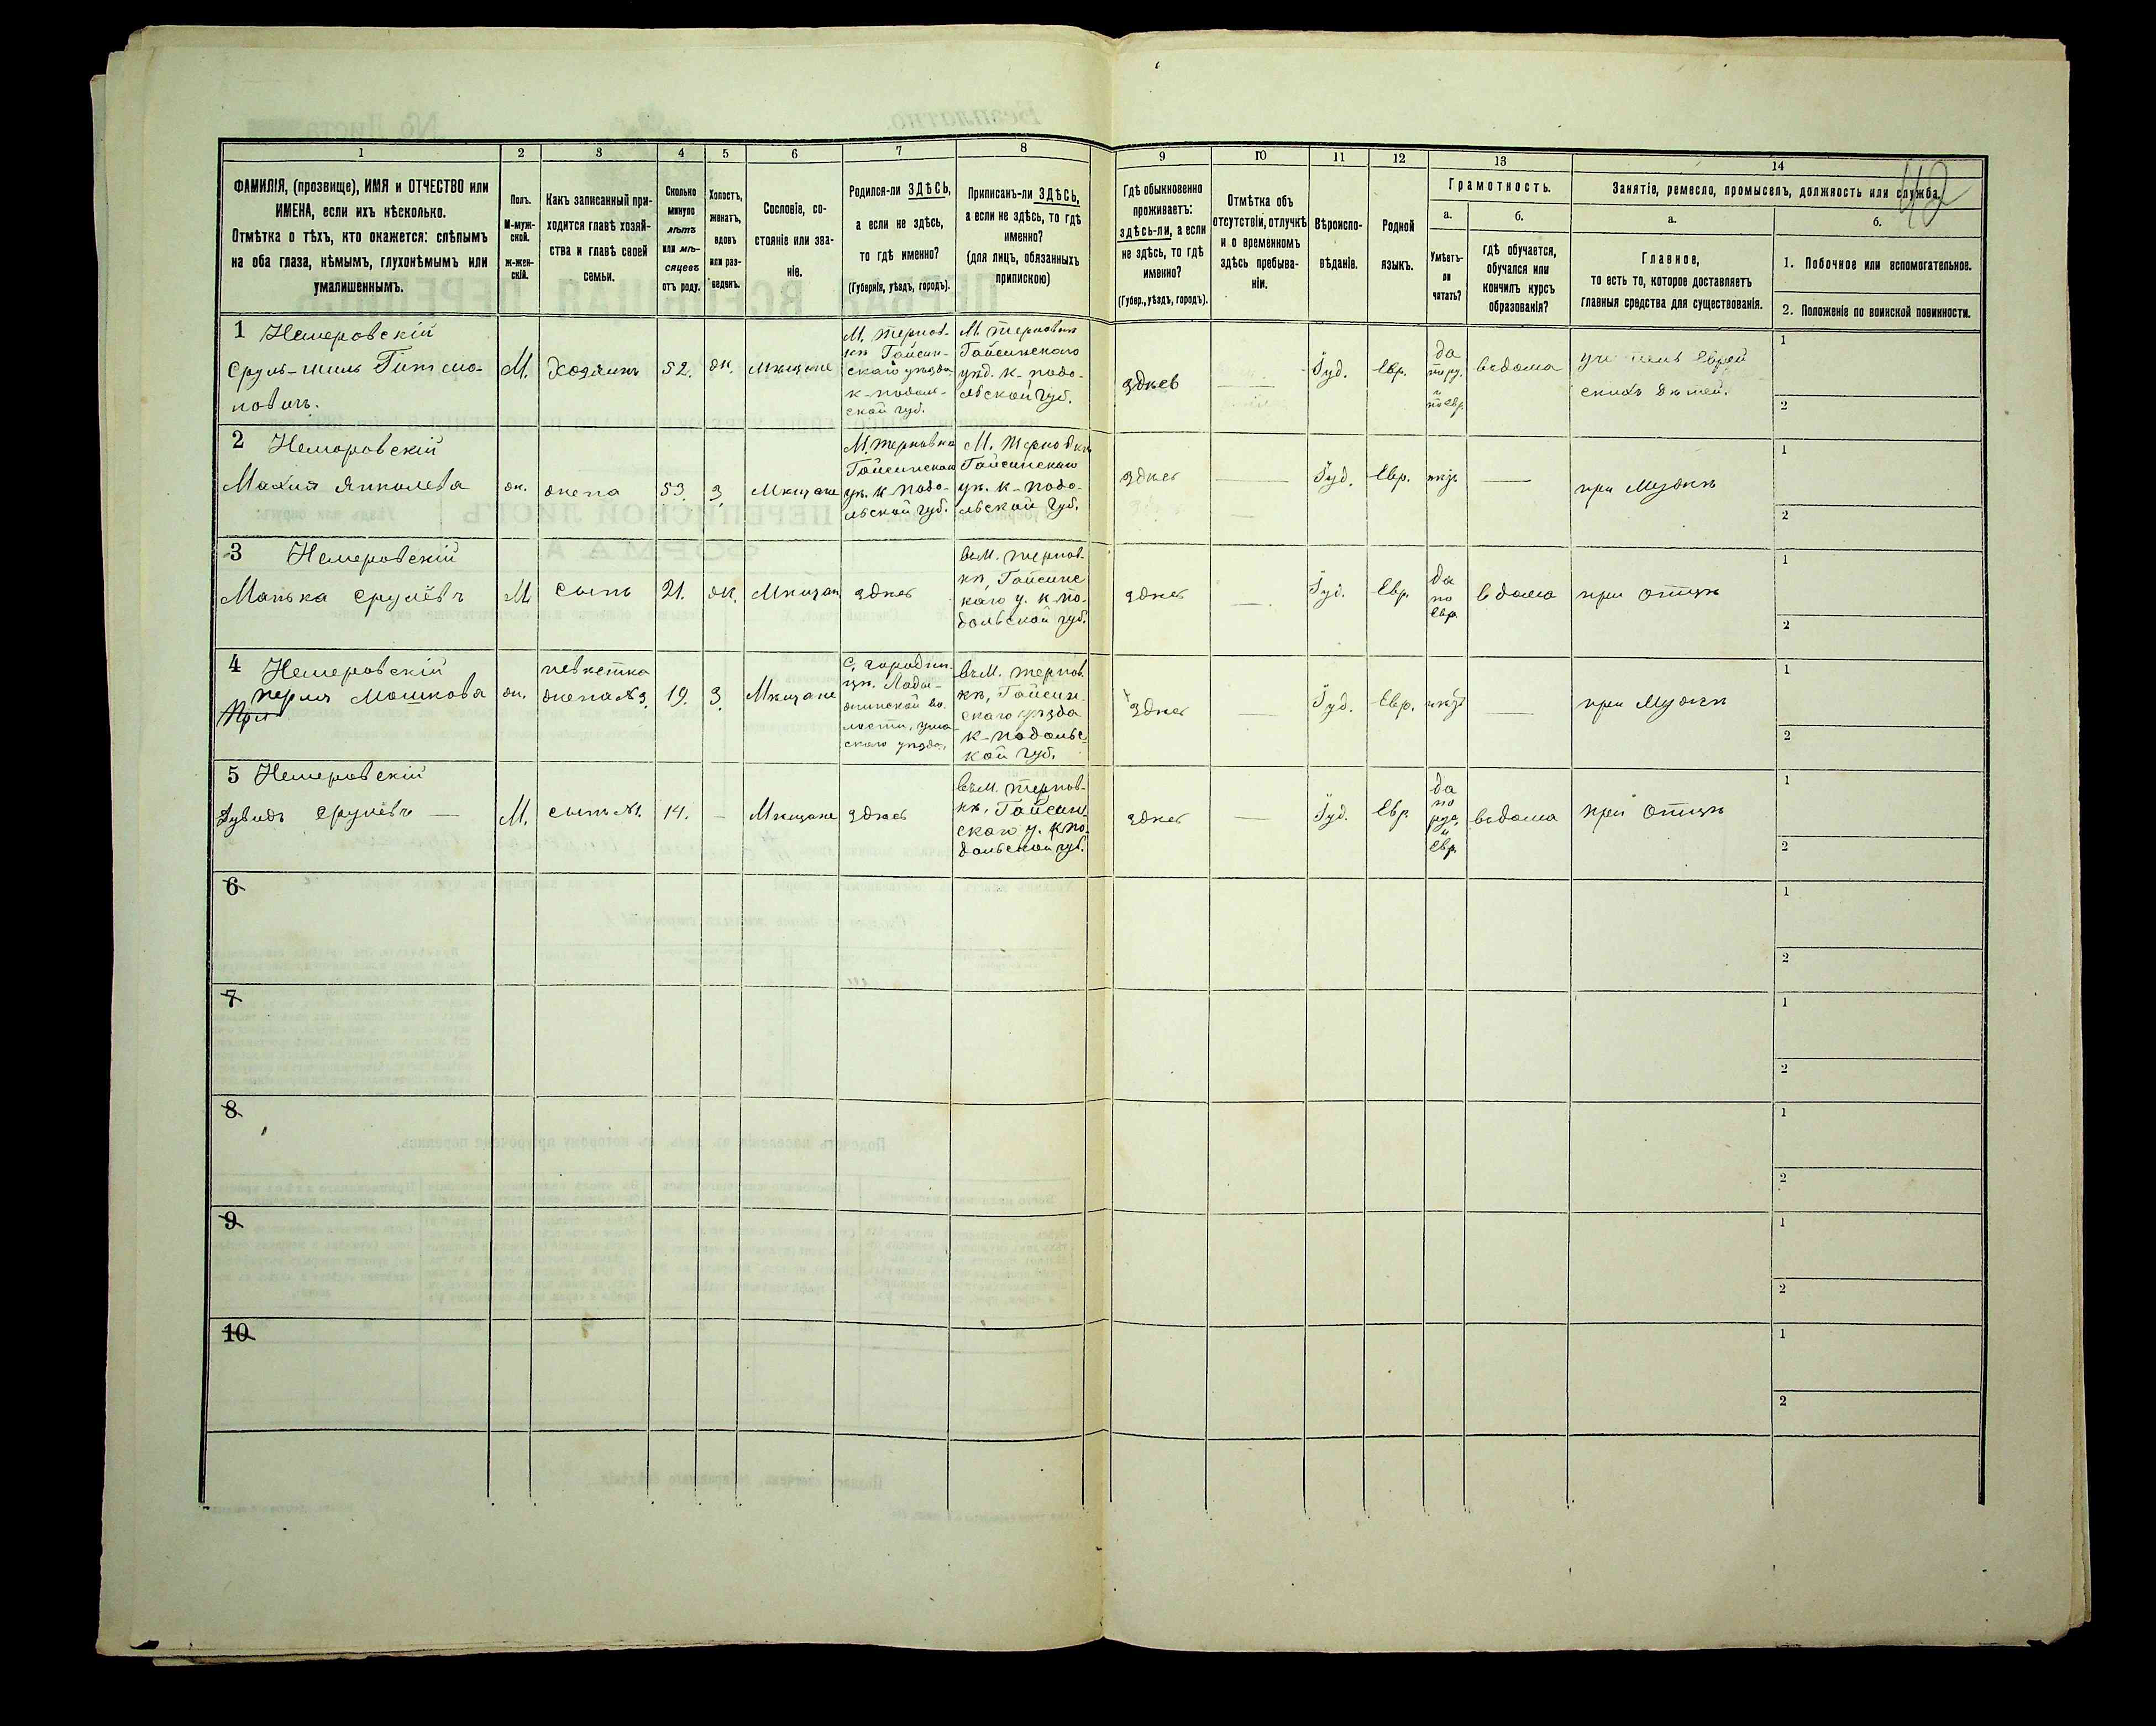 42
1
2
3
4
5
6
7
8
9
10
11
12
13
14
ФАМИЛІЯ, (прозвище), ИМЯ и ОТЧЕСТВО или
ИМЕНА, если ихъ нѣсколько.
Отмѣтка о тѣхъ, кто окажется: слѣпымъ
на оба глаза, нѣмымъ, глухонѣмымъ или
умалишеннымъ.
Полъ.
М-муж-
ской.
ж-жен-
скій.
Какъ записанный при-
ходится главѣ хозяй-
ства и главѣ своей
семьи.
Сколько
минуло
лѣтъ
или мѣ-
сяцевъ
отъ роду.
Холостъ,
женатъ,
вдовъ
или раз-
веденъ.
Сословіе, со-
стояніе или зва-
ніе.
Родился-ли ЗДѢСЬ,
а если не здѣсь,
то гдѣ именно?
(Губернія, уѣздъ, городъ).
Приписанъ-ли ЗДѢСЬ,
а если не здѣсь, то гдѣ
именно?
(для лицъ, обязанныхъ
припискою)
Гдѣ обыкновенно
проживаетъ:
здѣсь-ли, а если
не здѣсь, то гдѣ
именно?
(Губер., уѣздъ, городъ).
Отмѣтка объ
отсутствіи, отлучкѣ
и о временномъ
здѣсь пребыва-
ніи.
Вѣроиспо-
вѣданіе.
Родной
языкъ.
Грамотность.
а.
Умѣетъ-
ли
читать?
б.
гдѣ обучается,
обучался или
кончилъ курсъ
образованія?
Занятіе, ремесло, промыселъ, должность или служба.
а.
Главное,
то есть то, которое доставляетъ
главныя средства для существованія.
б.
1. Побочное или вспомогательное.
2. Положеніе по воинской повинности.
1 Немеровскій
Сруль-
новичъ.
М.
Хозяинъ
52.
ж.
Мѣщане
М. Тернов-
ки Гайсин-
скаго уѣзда
к-подоль-
ской губ.
М. Терновки
Гайсинскаго
уѣд. к-подо-
льской губ.
здѣсь
—
Іуд.
Евр.
да
по ру.
и
по евр.
въ дома
учитель еврей
скихъ дѣтей.
1
2
2 Немеровскій
Янкелева
ж.
жена
53.
З.
Мѣщане
М. Терновка
Гайсинскаго
уѣ. к-подо-
льской губ.
М. Терновки
Гайсинскаго
уѣ. к-подо-
льской губ.
здѣсь
—
Іуд.
Евр.
нѣтъ
—
при Мужѣ
1
2
3 Немеровскій
Манька Срулевъ
М
сынъ
21.
ж.
Мѣщан
здѣсь
въ М. Тернов-
ки, Гайсинс
каго у. к-по-
дольской губ.
здѣсь
—
Іуд.
Евр.
да
по
евр.
въ дома
при отцѣ
1
2
4 Немеровскій
Перля Мошкова
ж.
невѣстка
жена №3.
19.
З.
Мѣщане
С. Городни-
цы. Лады-
жинской во-
лости, ума-
скаго уѣзда,
въ М. Тернов.
ки, Гайсин-
скаго уѣзда
к-подольс-
кой губ.
здѣсь
—
Іуд.
Евр.
нѣтъ
—
при Мужѣ
1
2
5 Немеровскій
Дувидъ Срулевъ —
М.
сынъ №1.
14.
—
Мѣщане
здѣсь
въ М. Тернов-
ки, Гайсин-
скаго у. к по-
дольской губ.
здѣсь
—
Іуд.
Евр
да
по
рус.
и
евр.
въ дома
при отцѣ
1
2
6
1
2
7
1
2
8
1
2
9
1
2
10
1
2